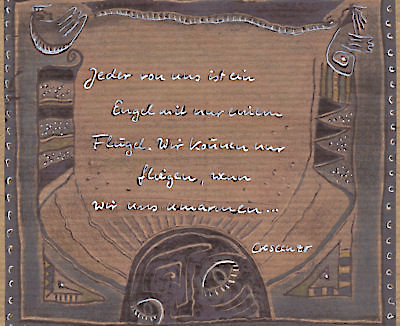 Jeder von uns ist ein
Engel mit nur einem
Flügel. Wir können nur
fliegen, wenn
wir uns umarmen...